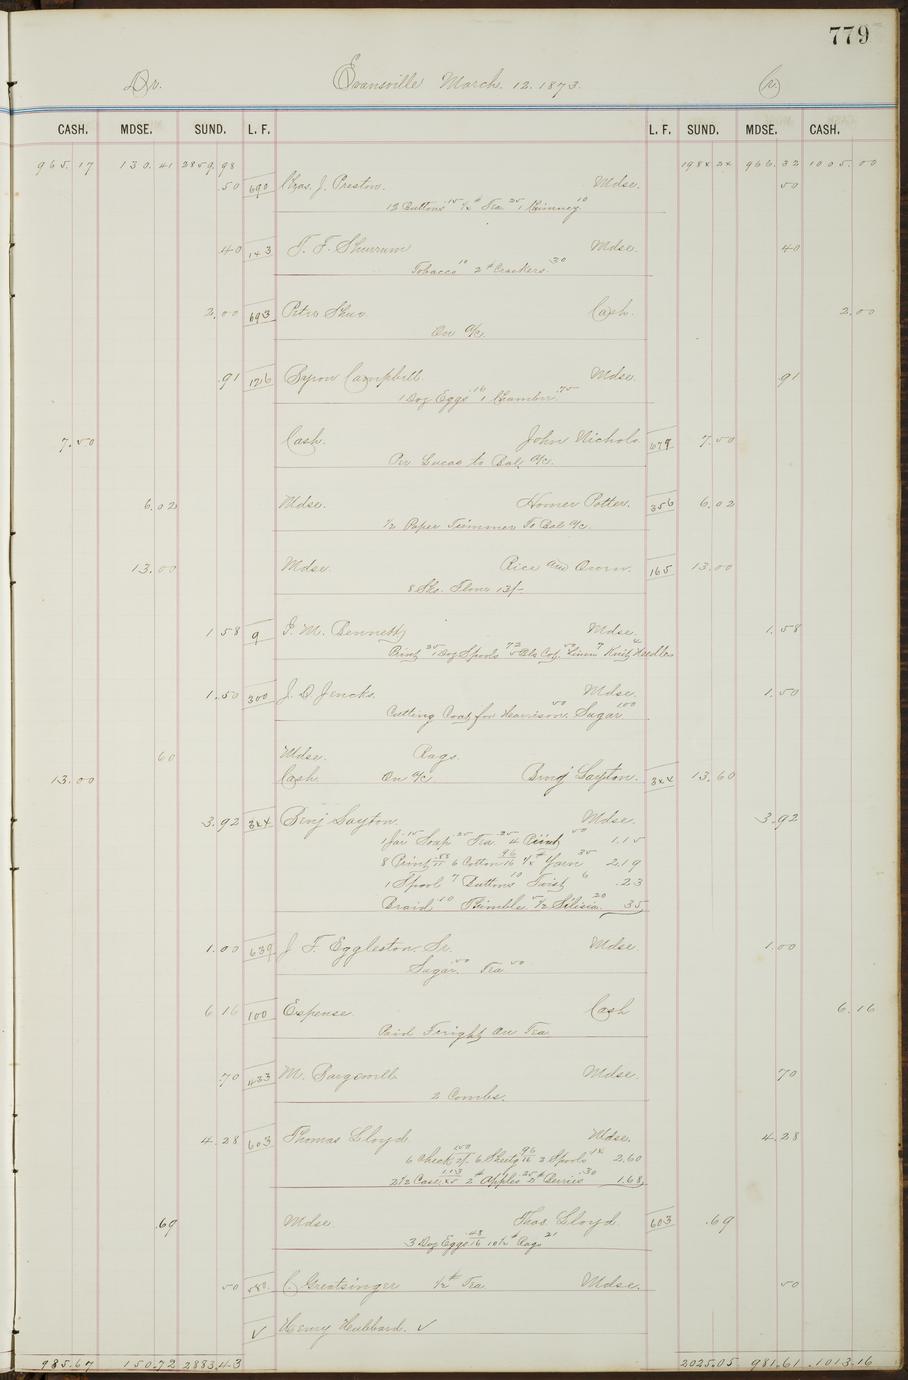 779
Dr. Evansville March. 12. 1873. Cr.
CASH. MDSE. SUND. L. F. L. F. SUND. MDSE. CASH.
965.17 130.41 2859.98 966.32 1005.00
.50 690 Chas. J. Preston. Mdse. 50
12 Buttons 15 ½# Tea 25 1 Chimney 10
.40 143 Mdse. 40
Tobacco 10 2# Crackers .30
2.00 693 Cash. 2.00
On a/c.
.91 126 Byron Campbell. Mdse. .91
1 Doz Eggs .16 1 Chamber .75
7.50 Cash. John Nichols. 679 7.50
Per Lucas to Bal. a/c.
6.02 Mdse. Homer Potter. 356 6.02
½ Paper Trimmer To Bal a/c.
13.00 Mdse. Rice and 165 13.00
8 Sks. Flour 13/-
1 58 9 Bennett Mdse. 1.58
Print 25 1 Doz Spools 72 50 7 Knitg Needles 4
1.50 300 J. D. Jencks. Mdse. 1.50
Cutting Coat for Harrison 50 Sugar 100
60 Mdse. Rags.
13.00 Cash On a/c. Benj Layton. 344 13.60
3.92 344 Benj Layton. Mdse. 3.92
1 Jar 15 Soap 25 Tea 25 4 Print 50 1.15
8 Print 88/11 6 Cotton 96/16 ¼# Yarn 35 2.19
1 Spool 7 Buttons 10 Twist 6 .23
Braid 10 Thimble 5 ½ Silisia 20 35
1.00 639 J. F. Eggleston. Sr. Mdse. 1.00
Sugar. 50 Tea 50
6 16 100 Expense. Cash 6.16
Paid Freight on Tea
.70 433 M. Mdse. 70
2 Combs.
4.28 603 Thomas Lloyd. Mdse. 4.28
6 Check 150/2/- 6 Sheetg 96/16 2 Spools 14 2.60
2½ Case 113/45 2# Apples 25 2# Berries .30 1.68
.69 Mdse Thos. Lloyd. 603 .69
3 Doz Eggs 48/16 10½# Rags 21
50 C. Greatsinger ½# Tea Mdse. 50
√ Henry Hubbard. √
985.67 150.72 2883.43 2025.05 981.61 1013.16